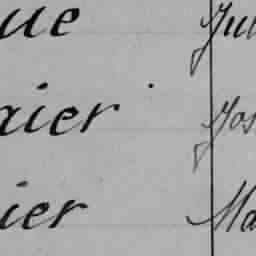 ue Jul
aier Jos
ier Ma